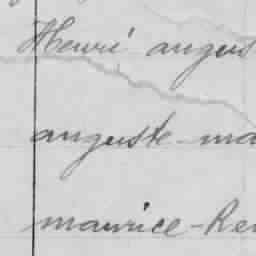 Henri augus
auguste-ma
maurice-Re